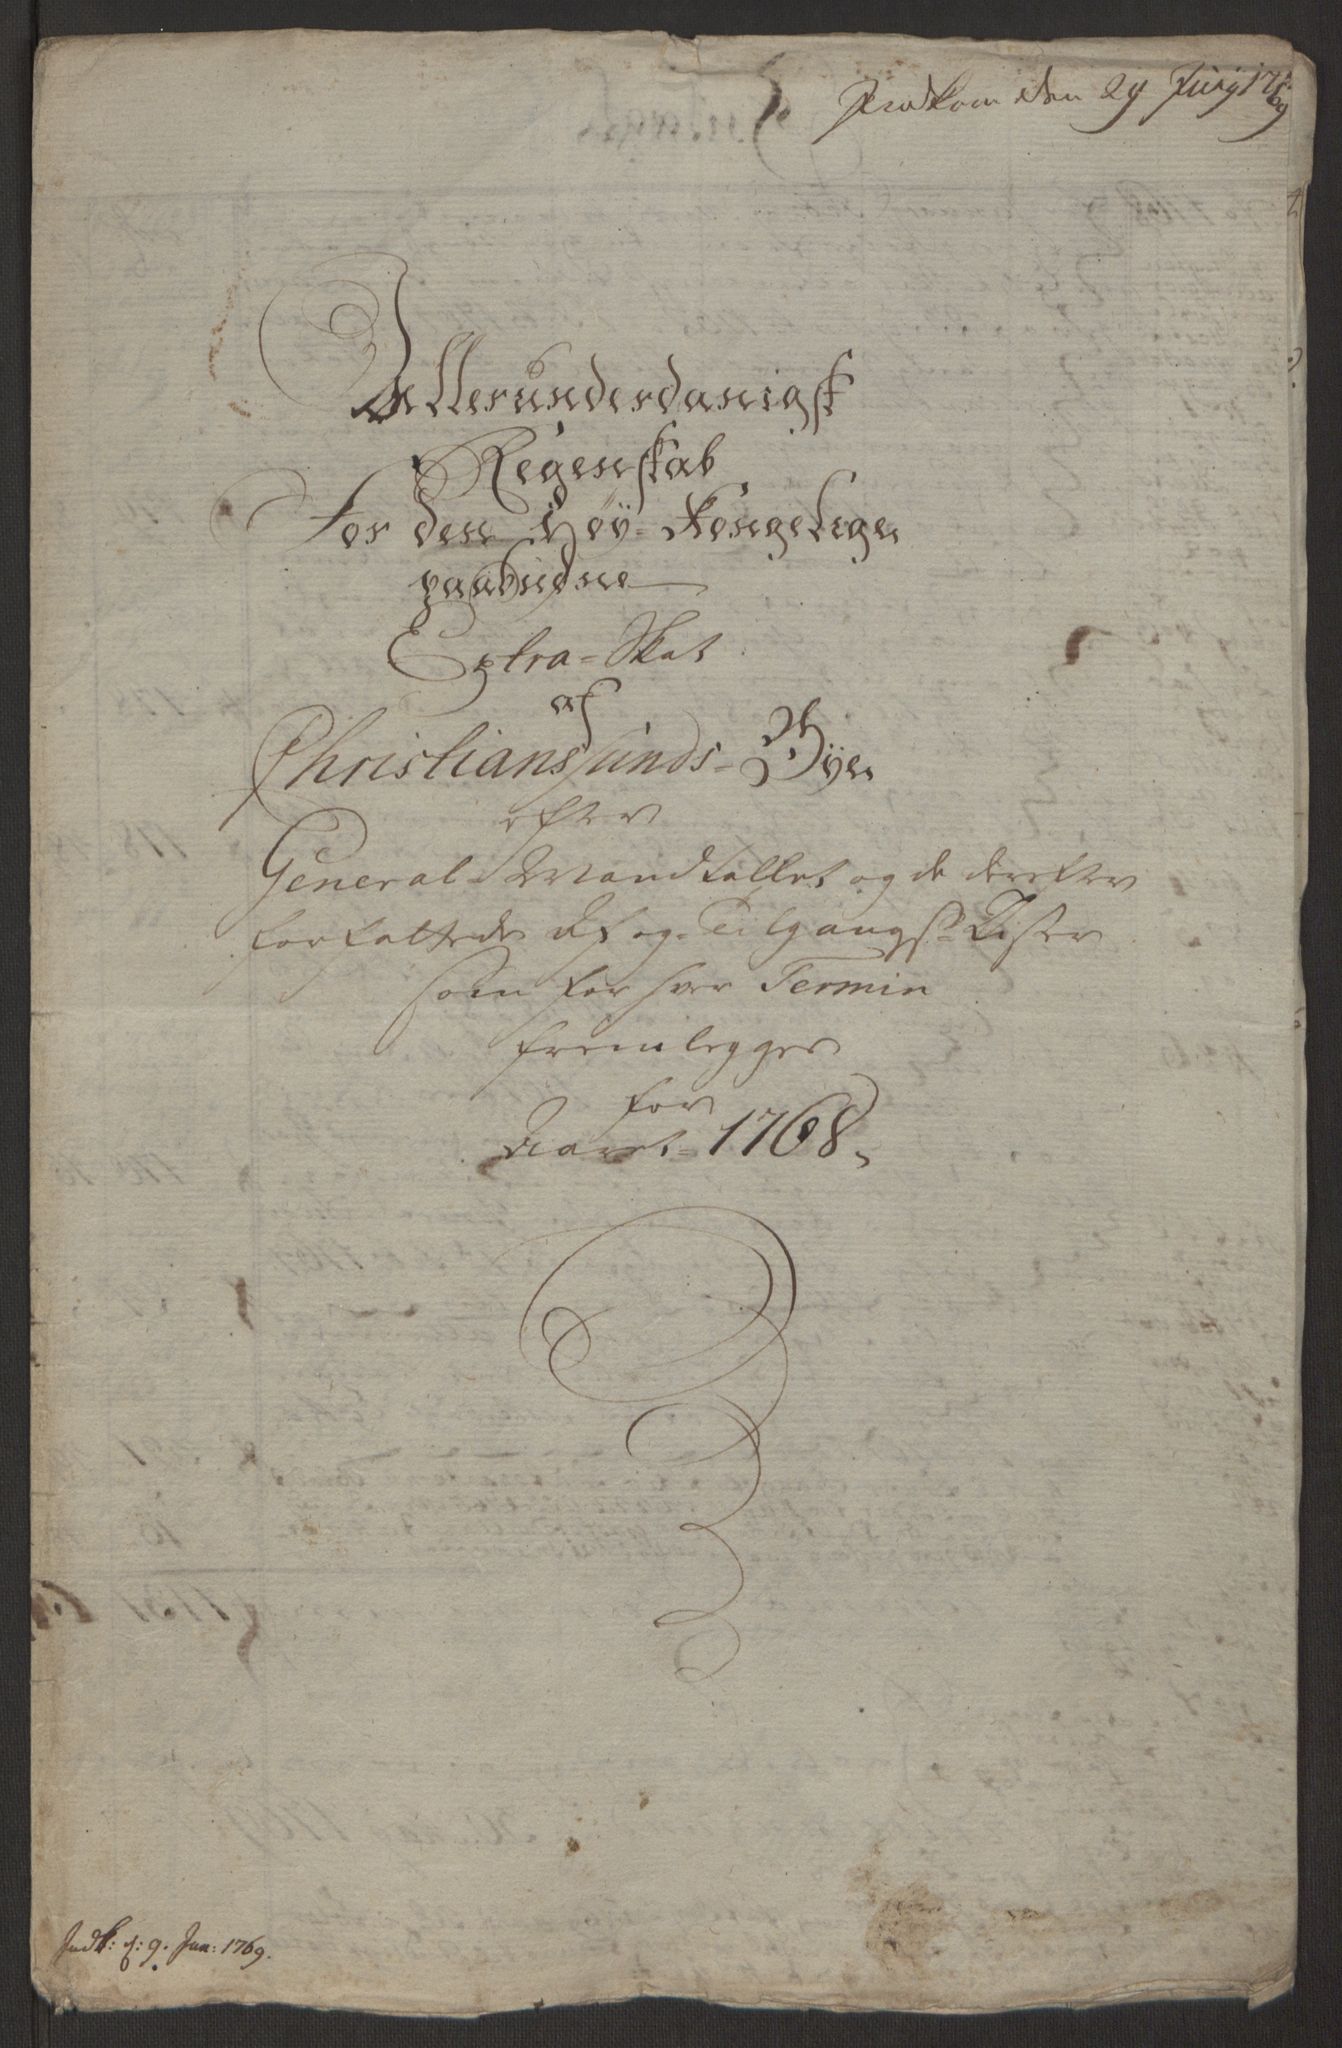 Indkom den 29 Junÿ 1769
Allerunderdanigst
Regenskab
For den Høÿ-Kongelige
paabudne
Extra-Skat
af
Christianssunds-Bÿe
efter
General-Mandtallet og de derefter
forfattede Af og Tilgangs Lister
som for hver Termin
fremlegges
for
Aaret 1768.
Indk: d: 9. Jun: 1769.